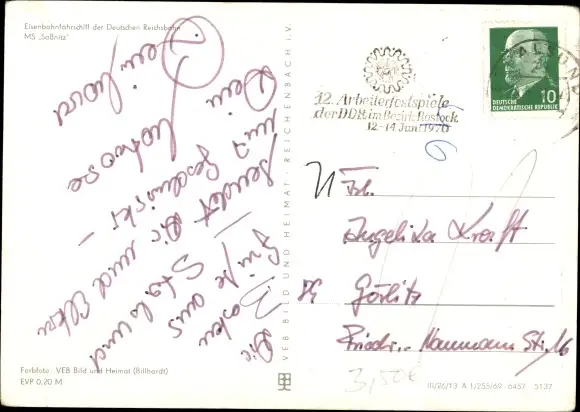 Eisenbahnfährschiff der Deutschen Reichsbahn
MS „Saßnitz"
Die
Grüße aus
Stralsund
sendet Dir und Eltern
und Geschwister -
Dein
Matrose
VEB BILD UND HEIMAT · REICHENBACH I. V.
12. Arbeiterfestspiele
der DDR im Bezirk Rostock
12.-14. Juni 1970
DEUTSCHE
DEMOKRATISCHE REPUBLIK
10
Frl.
Angelika Kraft
Görlitz
Friedr.-Naumann Str. 16
3,50€
Farbfoto: VEB Bild und Heimat (Billhardt)
EVP 0.20 M
III/26/13 A 1/255/69 6457 5137